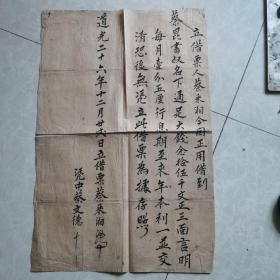 立借票人蔡来相今因正用借到
蔡昆書叔名下通足大錢叁拾伍千文正三面言明
每月壹分五厘行息期至来年本利一並交
清恐後無憑立此借票為據存照
道光二十六年十二月廿六日立借票蔡来相
憑中蔡文德